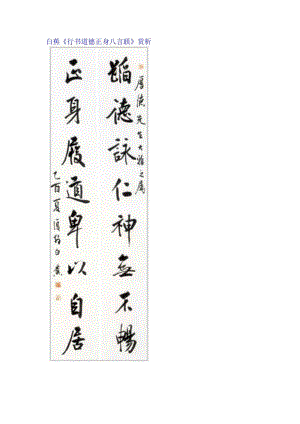 白蕉《行书道德正身八言联》赏析
德先生大雅之属
蹈德詠仁神無不暢
正身履道卑以自居
乙酉夏白蕉